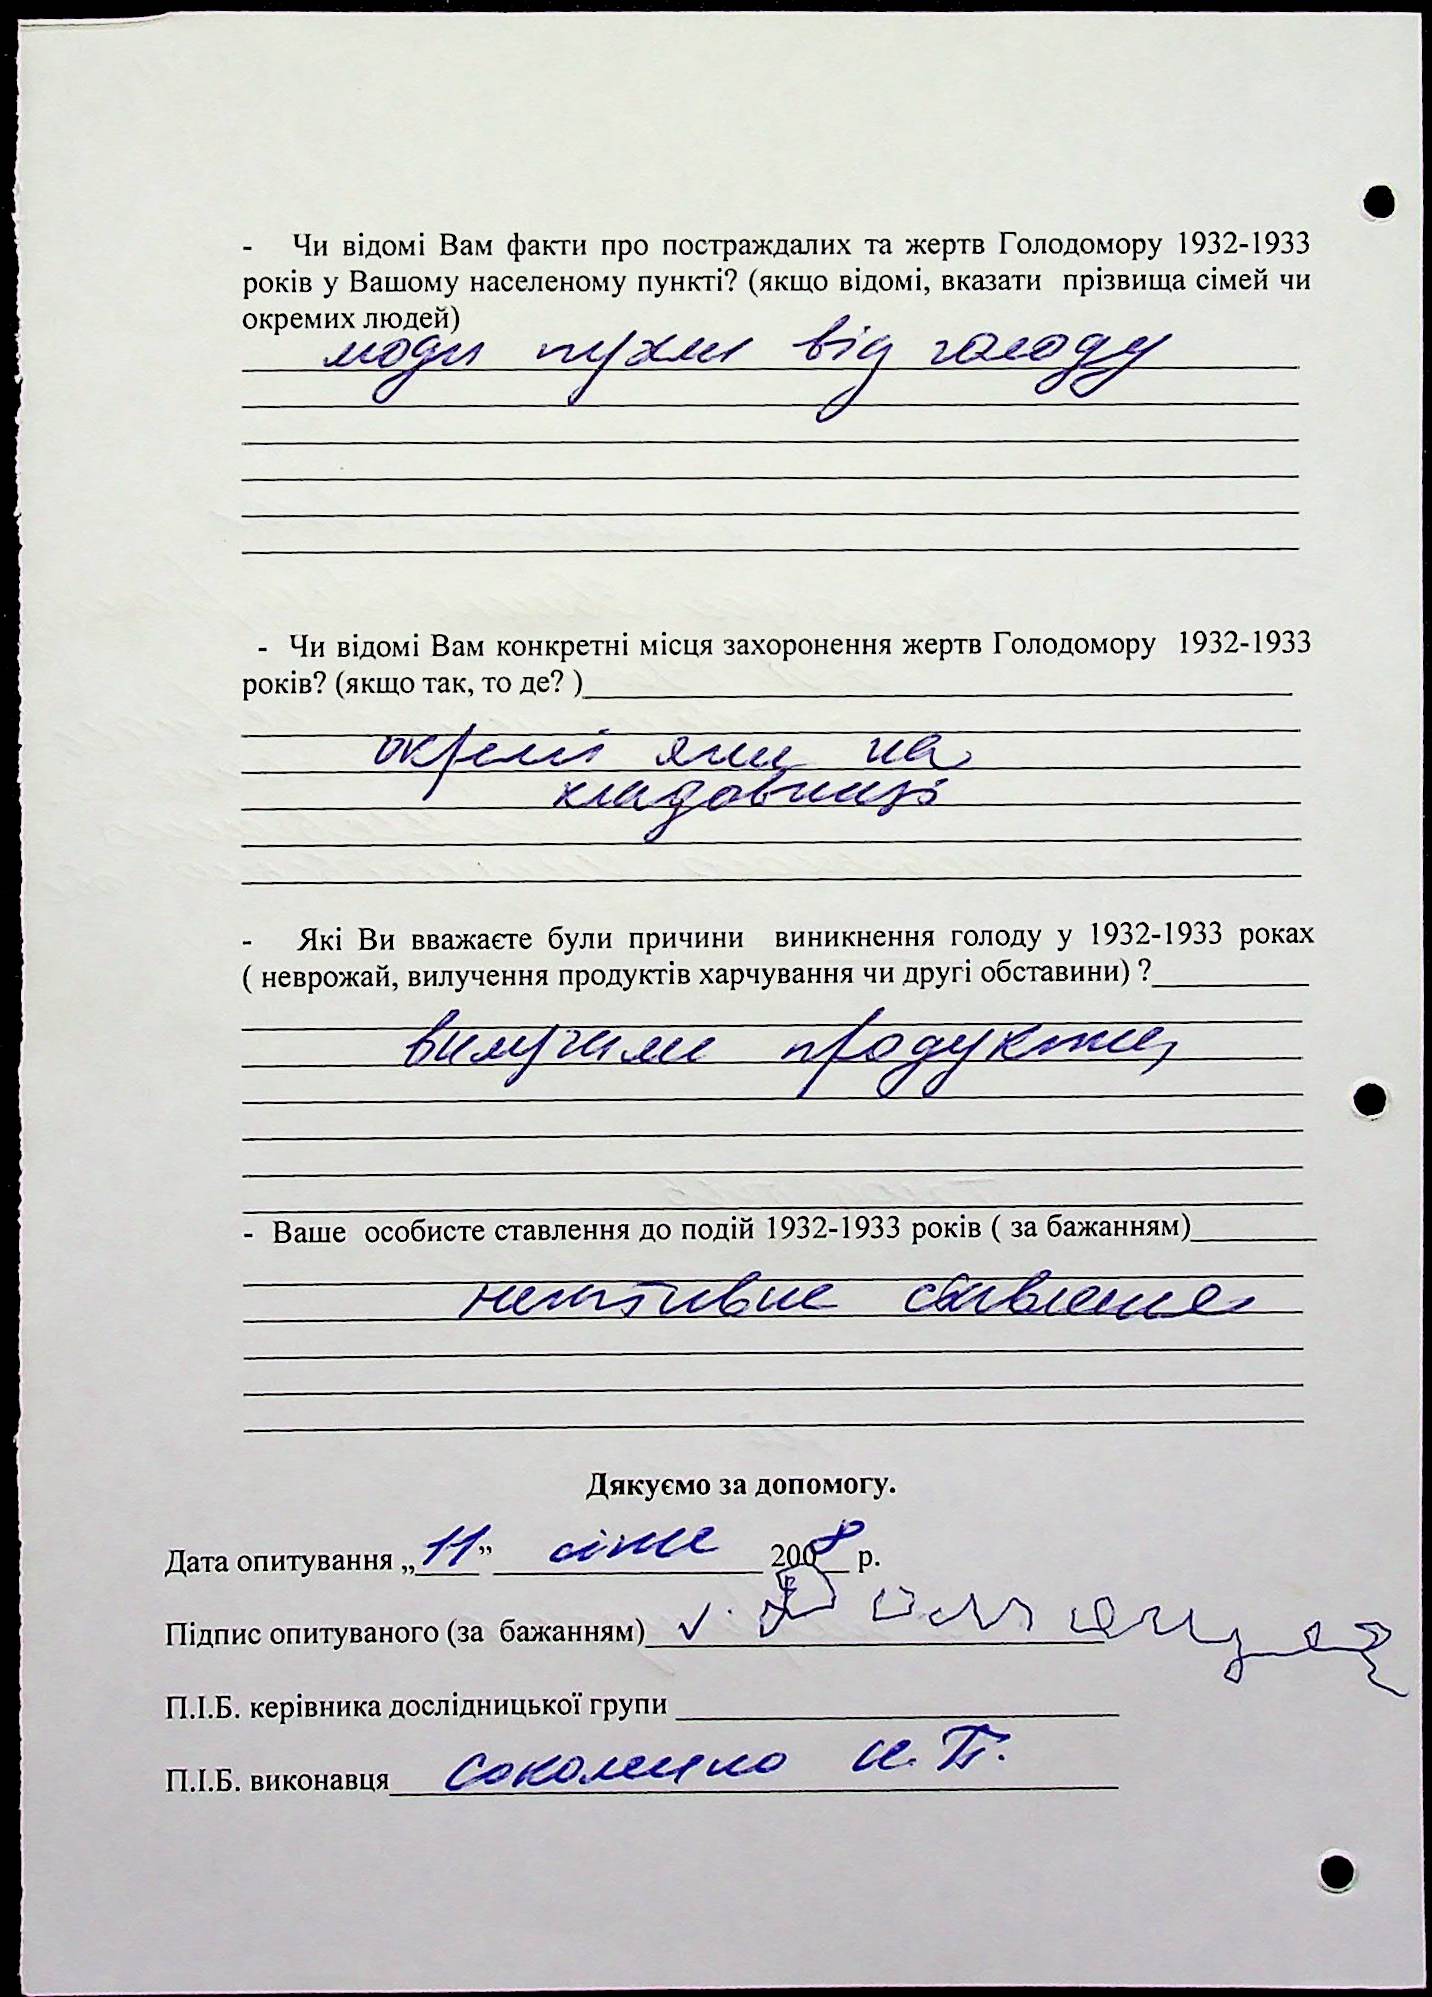 - Чи відомі Вам факти про постраждалих та жертв Голодомору 1932-1933
років у Вашому населеному пункті? (якщо відомі, вказати прізвища сімей чи
окремих людей)
люди пухли від голоду
- Чи відомі Вам конкретні місця захоронення жертв Голодомору 1932-1933
років? (якщо так, то де? )
окремі ями на
кладовищі
- Які Ви вважаєте були причини виникнення голоду у 1932-1933 роках
( неврожай, вилучення продуктів харчування чи другі обставини) ?
вилучили продукти
- Ваше особисте ставлення до подій 1932-1933 років ( за бажанням)
негативне ставлення
Дякуємо за допомогу.
Дата опитування „11” січня 2008 р.
Підпис опитуваного (за бажанням)
П.І.Б. керівника дослідницької групи
П.І.Б. виконавця